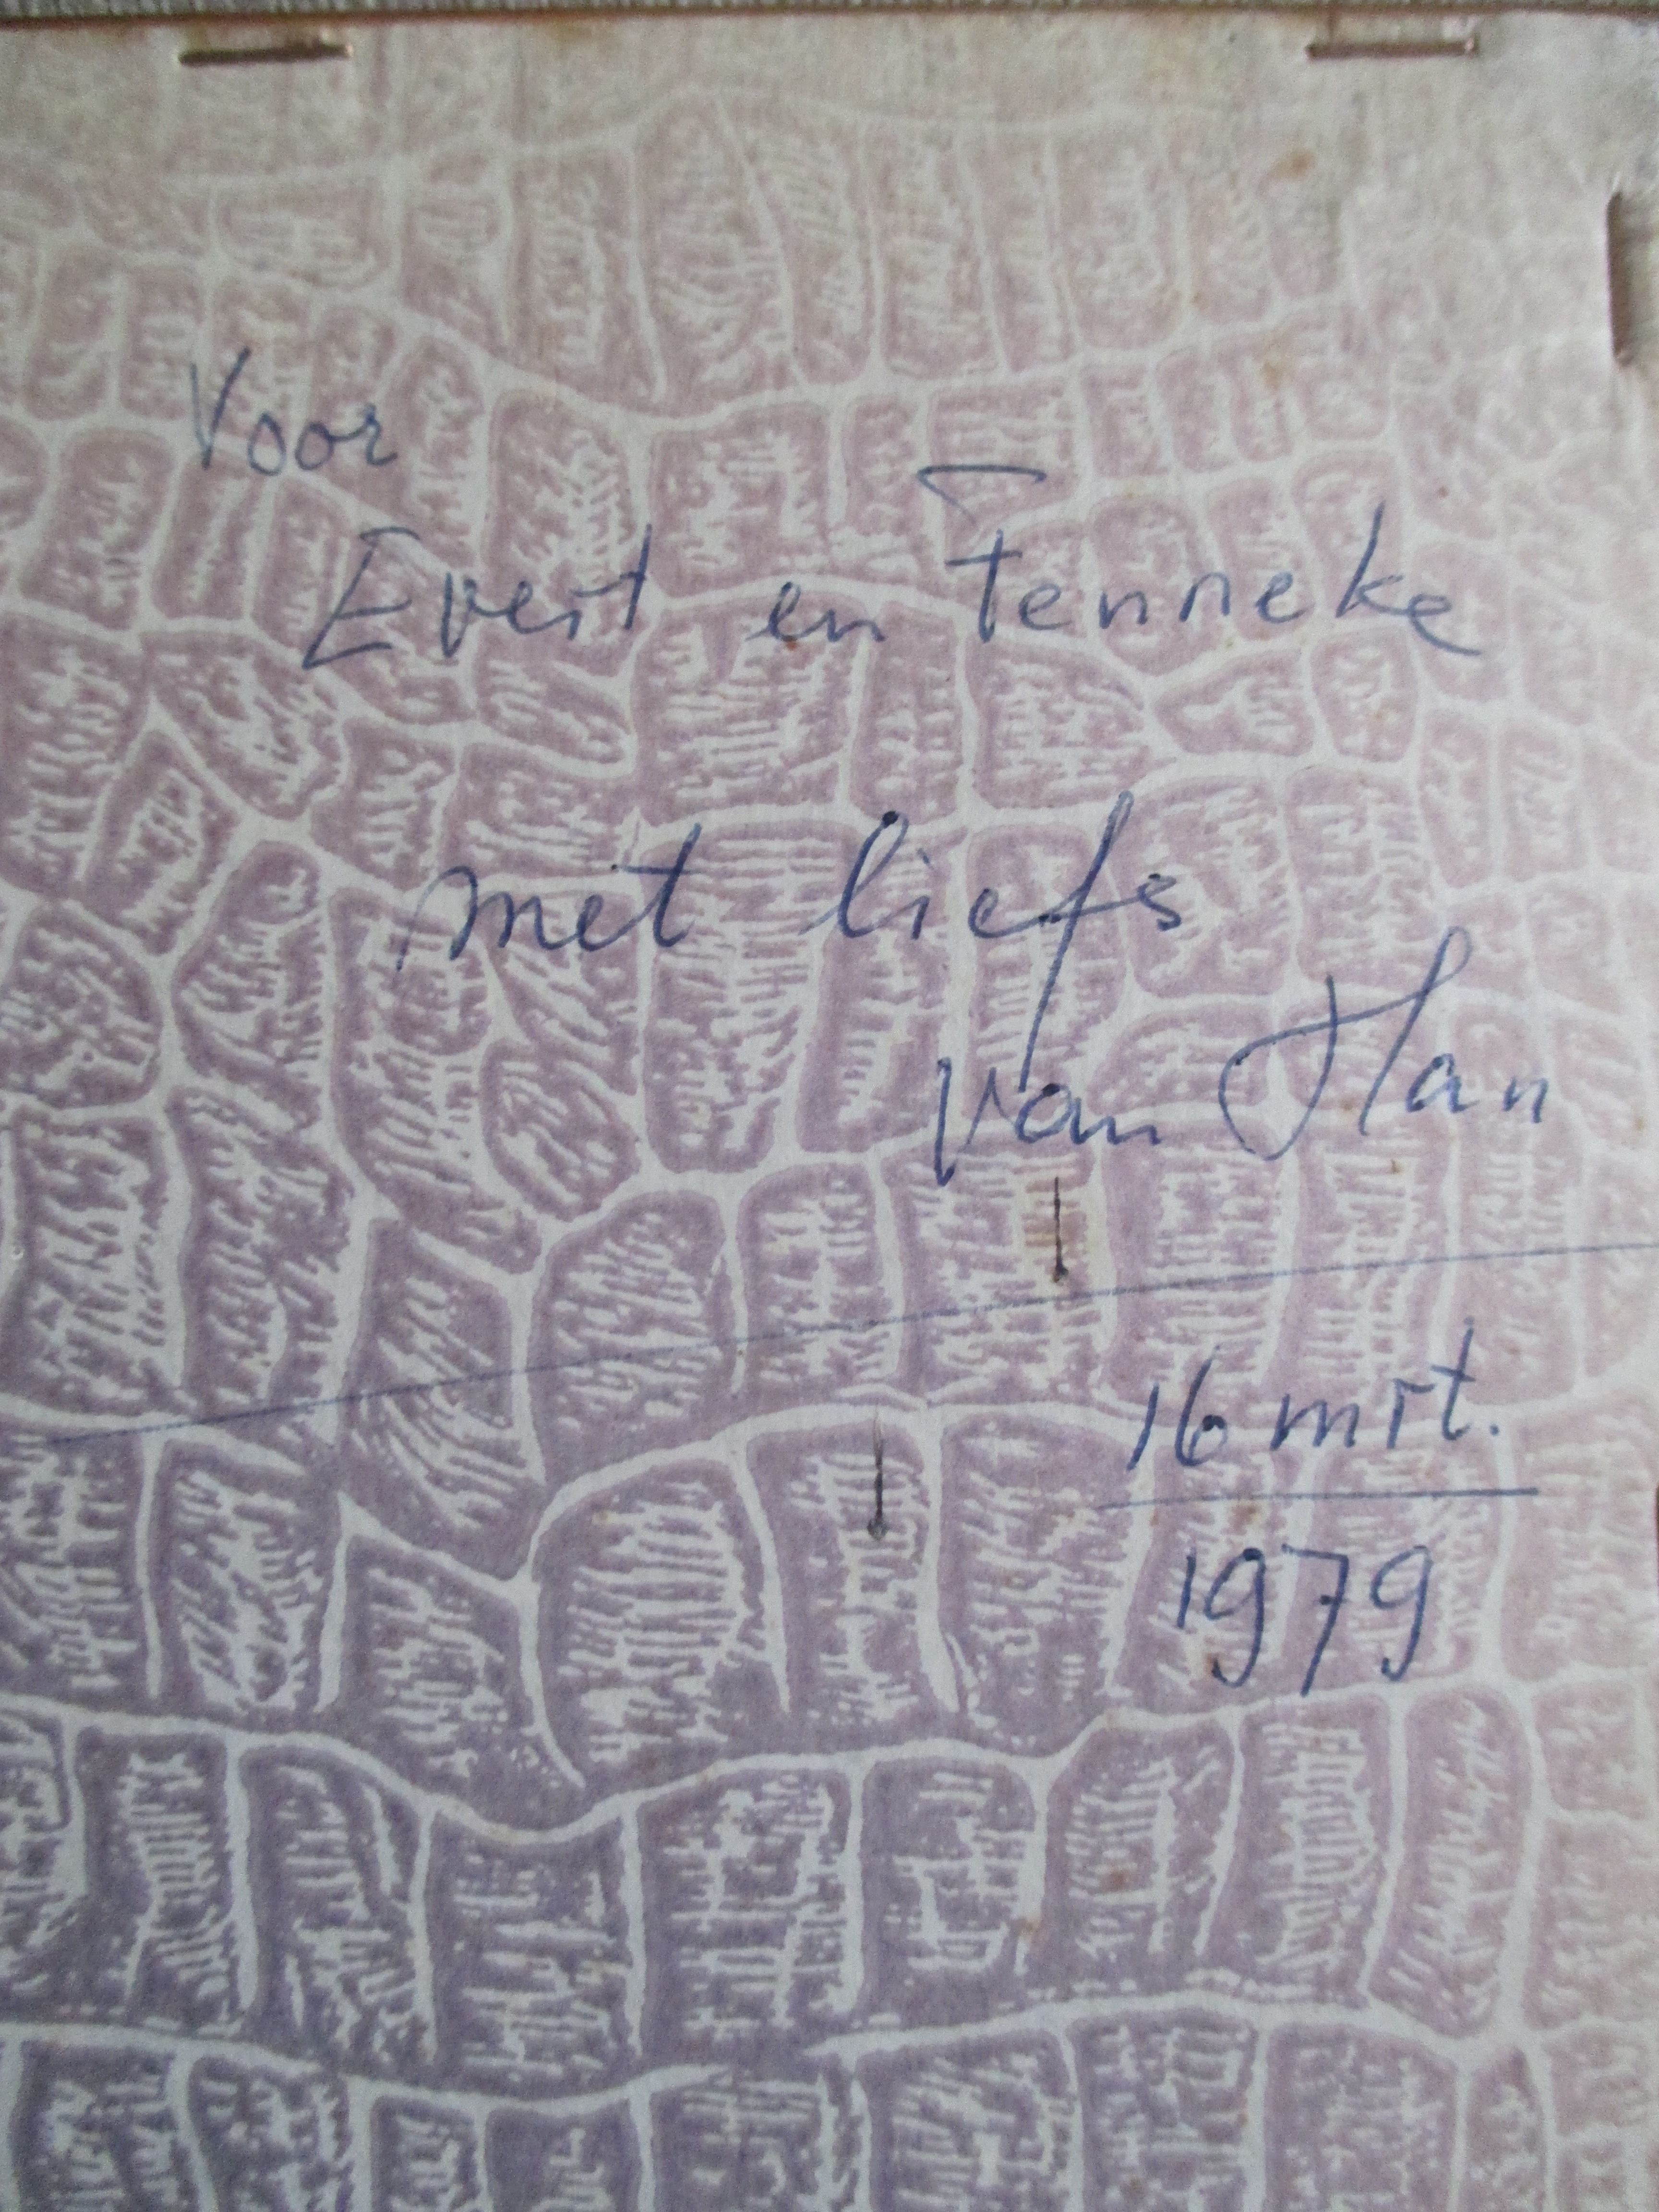 Voor
Evert en Fenneke
met liefs
van Han
16 mrt.
1979